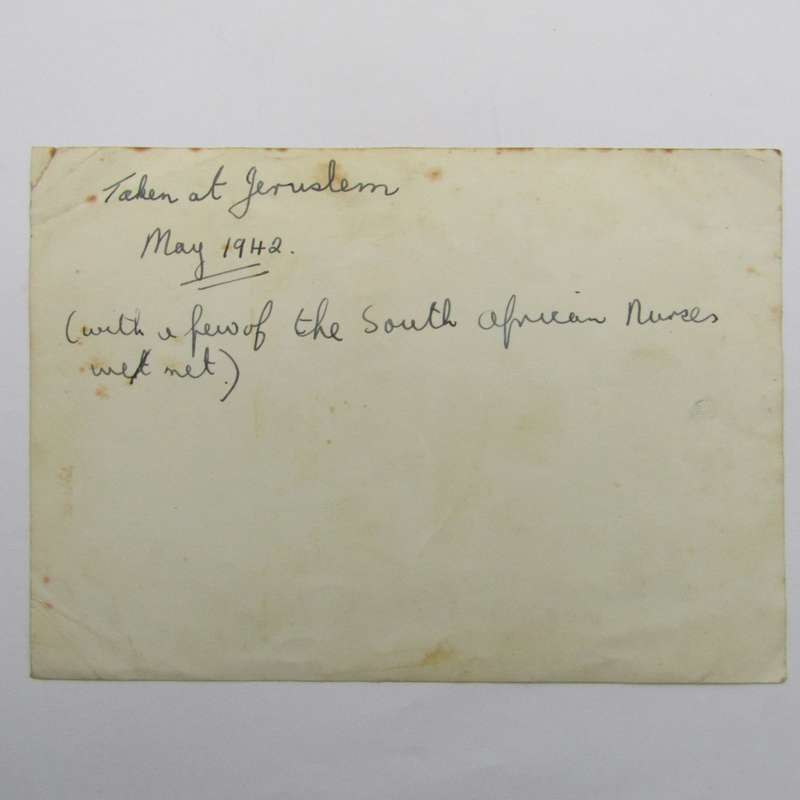 Taken at Jeruslem
May 1942.
(with a few of the South African Nurses
we met.)